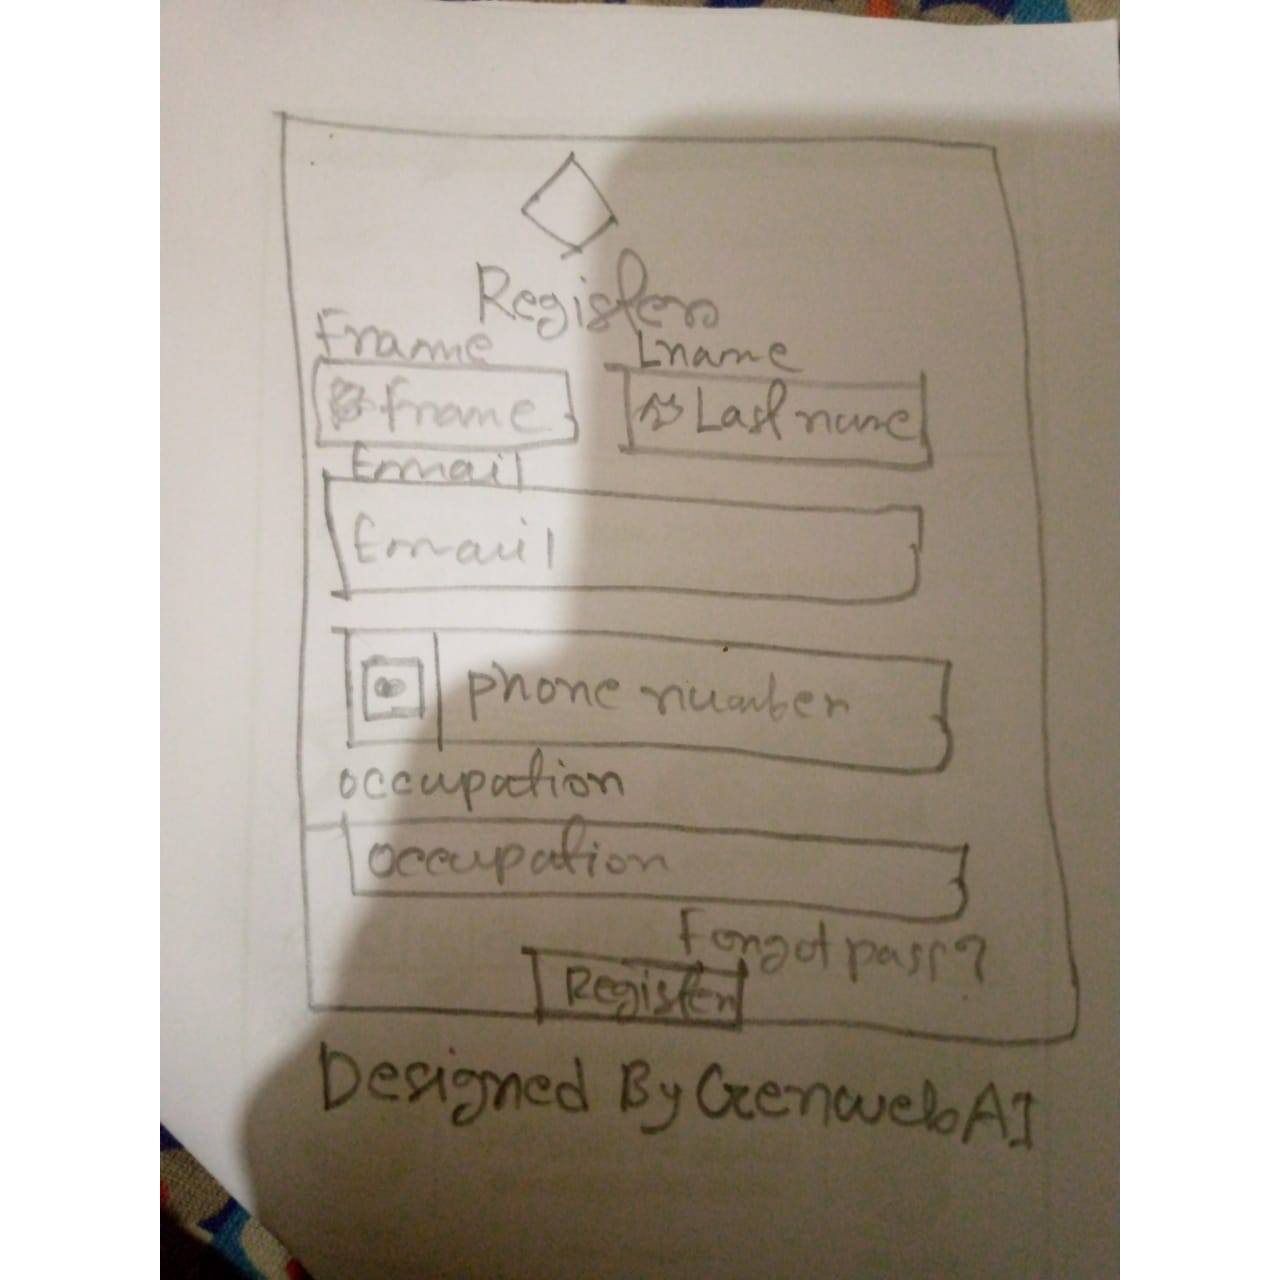 Register
Fname Lname
fname Last name
Email
Email
phone number
occupation
occupation
Forgot pass?
Register
Designed By GenwebAI